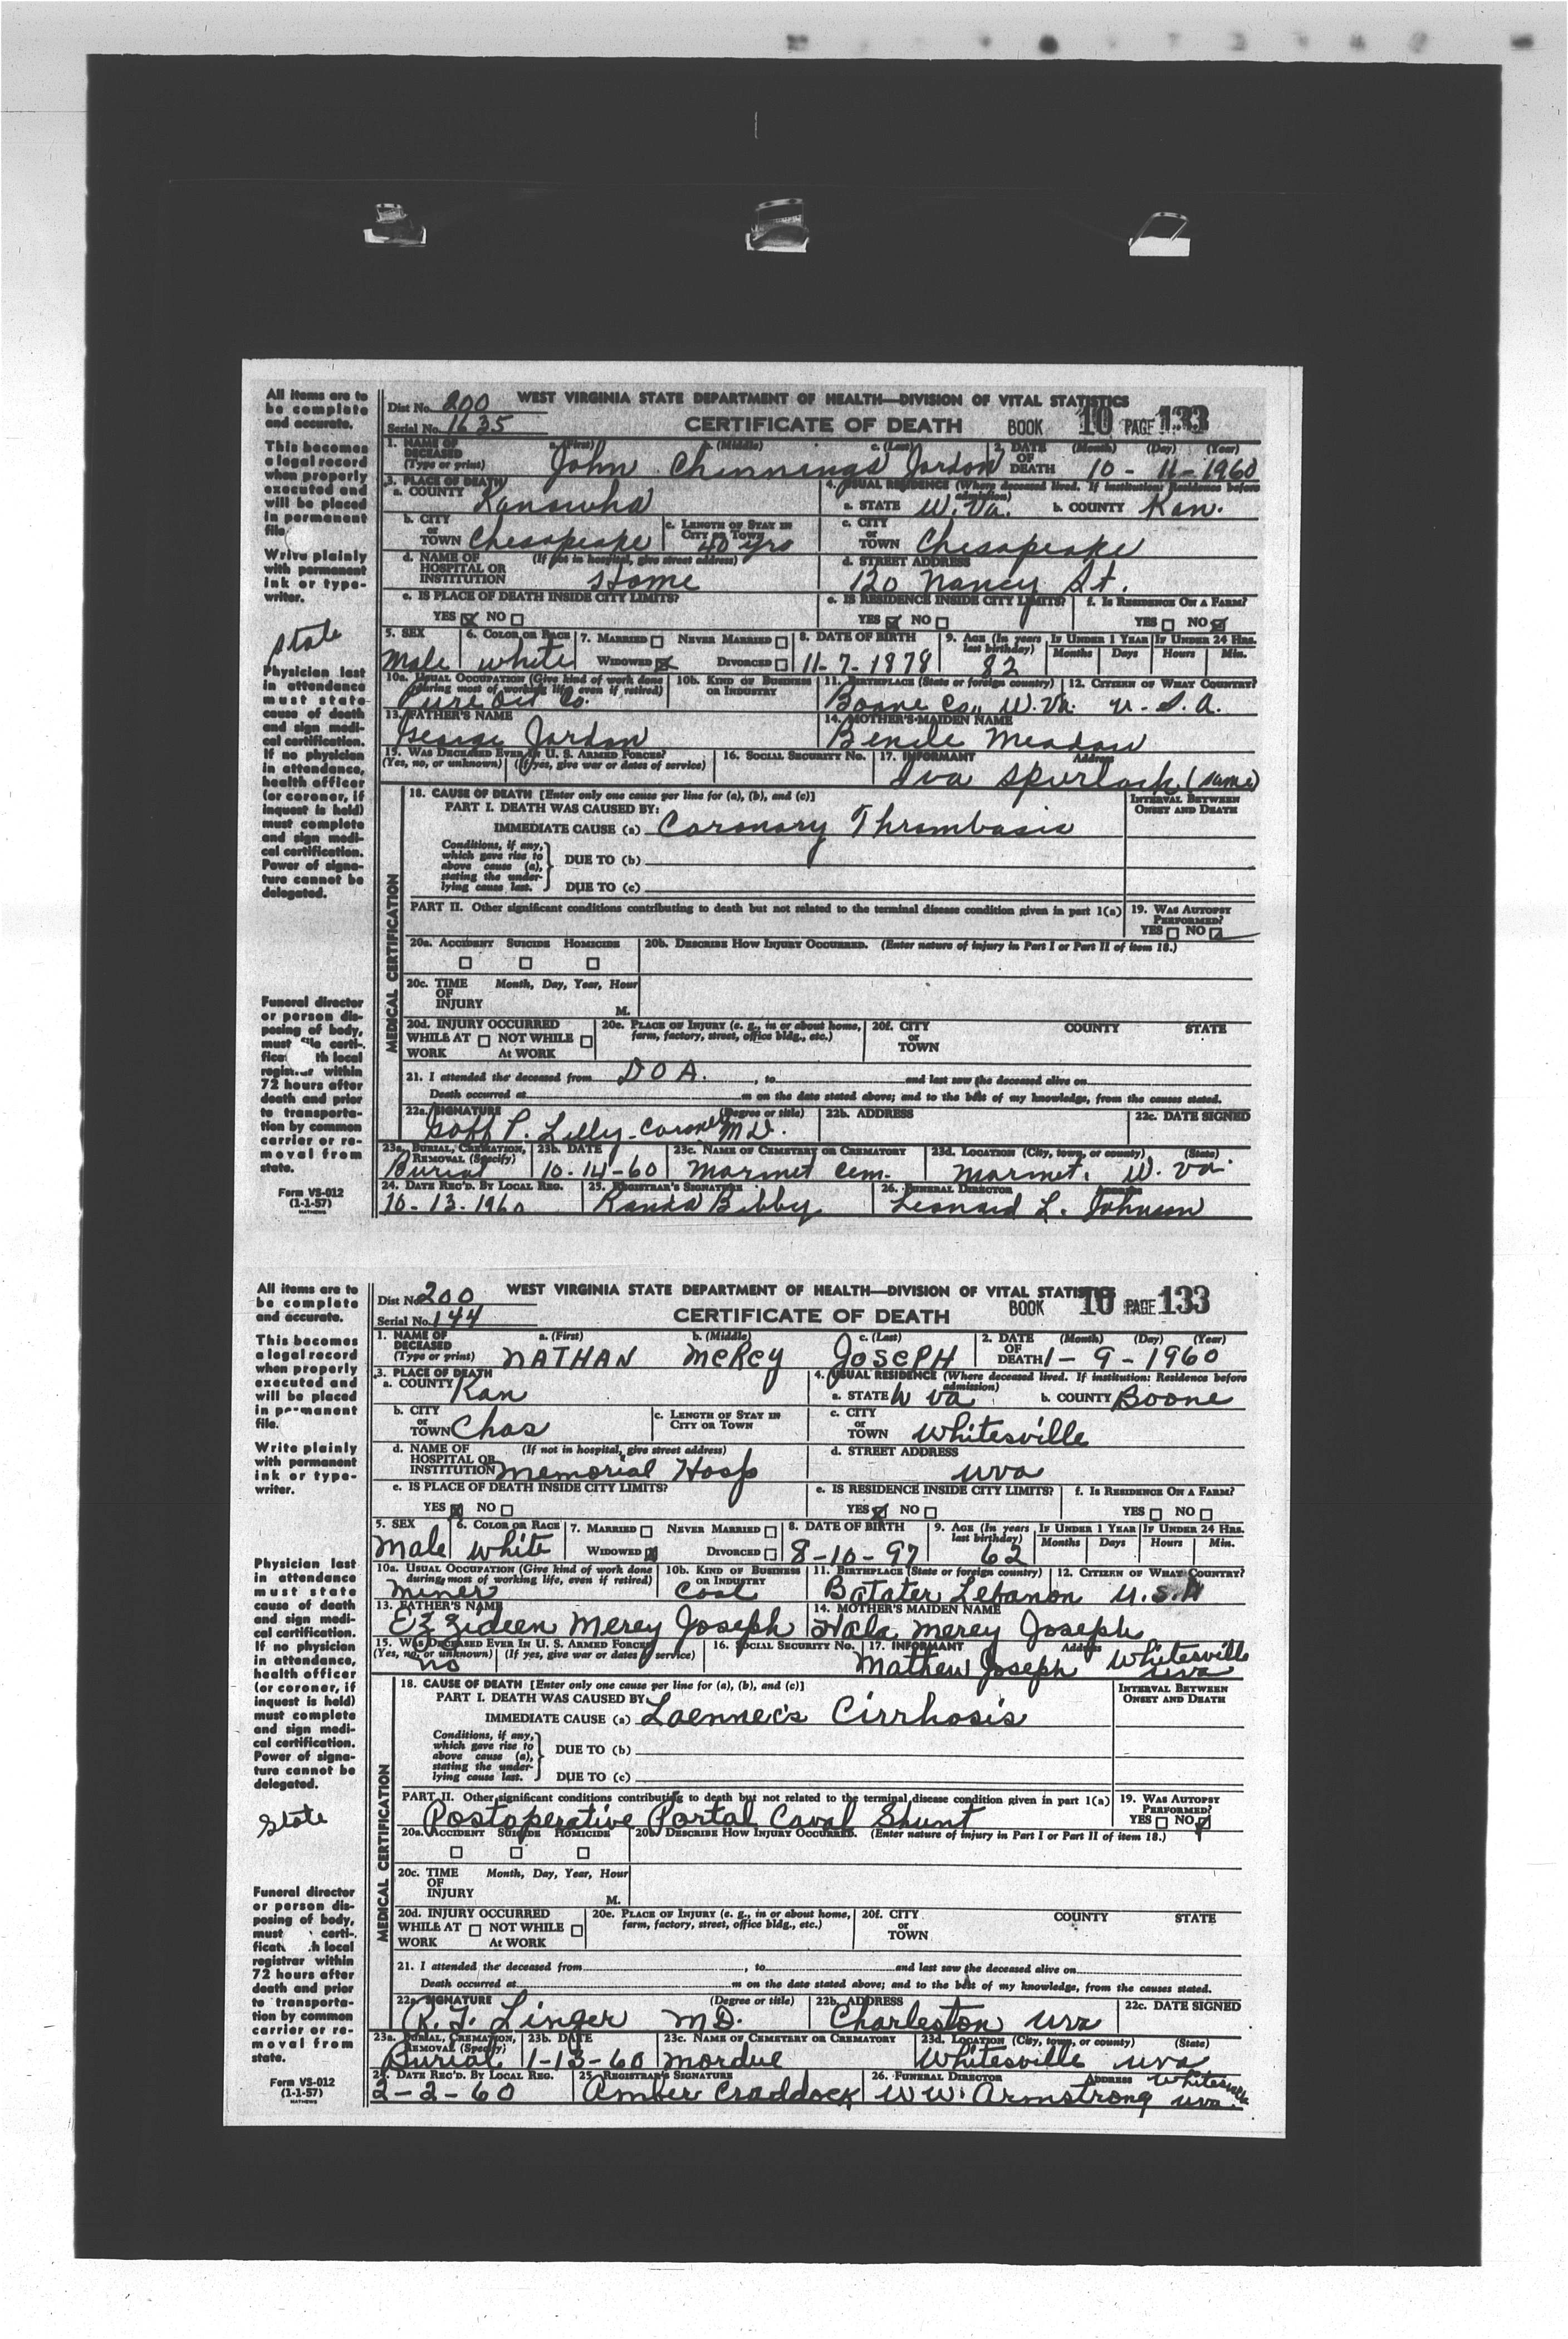 All items are to
be complete
and accurate.
This becomes
a legal record
when properly
executed and
will be placed
in permanent
file.
Write plainly
with permanent
ink or type-
writer.
State
Physician last
in attendance
must state
cause of death
and sign medi-
cal certification.
If no physician
in attendance,
health officer
(or coroner, if
inquest is held)
must complete
and sign medi-
cal certification.
Power of signa-
ture cannot be
delegated.
Funeral director
or person dis-
posing of body,
must file certi-
fica th local
registrar within
72 hours after
death and prior
to transporta-
tion by common
carrier or re-
moval from
state.
Form VS-012
(1-1-57)
MATHEWS
WEST VIRGINIA STATE DEPARTMENT OF HEALTH—DIVISION OF VITAL STATISTICS
Dist No. 200
Serial No. 1635 CERTIFICATE OF DEATH BOOK 10 PAGE 133
1. NAME OF DECEASED (Type or print) a. (First) b. (Middle) c. (Last) John Chinnings Jordon 2. DATE OF DEATH (Month) (Day) (Year) 10-11-1960
3. PLACE OF DEATH a. COUNTY Kanawha 4. USUAL RESIDENCE (Where deceased lived. If institution: Residence before admission) a. STATE W. Va. b. COUNTY Kan.
b. CITY or TOWN Chesapeake c. LENGTH OF STAY IN CITY or TOWN 40 yrs c. CITY or TOWN Chesapeake
d. NAME OF HOSPITAL OR INSTITUTION (If not in hospital, give street address) Home d. STREET ADDRESS 120 Nancy St.
e. IS PLACE OF DEATH INSIDE CITY LIMITS? e. IS RESIDENCE INSIDE CITY LIMITS? f. IS RESIDENCE ON A FARM?
YES NO YES NO YES NO
5. SEX Male 6. COLOR OR RACE white 7. MARRIED NEVER MARRIED WIDOWED DIVORCED 8. DATE OF BIRTH 11-7-1878 9. AGE (In years last birthday) 82 IF UNDER 1 YEAR Months Days IF UNDER 24 HRS. Hours Min.
10a. USUAL OCCUPATION (Give kind of work done during most of working life, even if retired) Pure Oil Co. 10b. KIND OF BUSINESS OR INDUSTRY 11. BIRTHPLACE (State or foreign country) Boone Co., W. Va. 12. CITIZEN OF WHAT COUNTRY? U. S. A.
13. FATHER'S NAME George Jordon 14. MOTHER'S MAIDEN NAME Meadow
15. WAS DECEASED EVER IN U. S. ARMED FORCES? (Yes, no, or unknown) (If yes, give war or dates of service) 16. SOCIAL SECURITY No. 17. INFORMANT Address Iva Spurlock (same)
MEDICAL CERTIFICATION
18. CAUSE OF DEATH [Enter only one cause per line for (a), (b), and (c)] INTERVAL BETWEEN ONSET AND DEATH
PART I. DEATH WAS CAUSED BY:
IMMEDIATE CAUSE (a) Coronary Thrombosis
Conditions, if any, which gave rise to above cause (a), stating the underlying cause last. DUE TO (b)
DUE TO (c)
PART II. Other significant conditions contributing to death but not related to the terminal disease condition given in part 1(a) 19. WAS AUTOPSY PERFORMED? YES NO
20a. ACCIDENT SUICIDE HOMICIDE 20b. DESCRIBE HOW INJURY OCCURRED. (Enter nature of injury in Part I or Part II of item 18.)
20c. TIME OF INJURY Month, Day, Year, Hour M.
20d. INJURY OCCURRED WHILE AT WORK NOT WHILE At WORK 20e. PLACE OF INJURY (e. g., in or about home, farm, factory, street, office bldg., etc.) 20f. CITY or TOWN COUNTY STATE
21. I attended the deceased from D O A. , to and last saw the deceased alive on
Death occurred at m on the date stated above; and to the best of my knowledge, from the causes stated.
22a. SIGNATURE (Degree or title) Goff P. Lilly - Coroner M.D. 22b. ADDRESS 22c. DATE SIGNED
23a. BURIAL, CREMATION, REMOVAL (Specify) Burial 23b. DATE 10-14-60 23c. NAME OF CEMETERY OR CREMATORY Marmet Cem. 23d. LOCATION (City, town, or county) (State) Marmet, W. Va.
24. DATE REC'D. BY LOCAL REG. 10-13-1960 25. REGISTRAR'S SIGNATURE Randa Bibby 26. FUNERAL DIRECTOR ADDRESS Leonard L. Johnson
All items are to
be complete
and accurate.
This becomes
a legal record
when properly
executed and
will be placed
in permanent
file.
Write plainly
with permanent
ink or type-
writer.
Physician last
in attendance
must state
cause of death
and sign medi-
cal certification.
If no physician
in attendance,
health officer
(or coroner, if
inquest is held)
must complete
and sign medi-
cal certification.
Power of signa-
ture cannot be
delegated.
State
Funeral director
or person dis-
posing of body,
must certi-
ficat .h local
registrar within
72 hours after
death and prior
to transporta-
tion by common
carrier or re-
moval from
state.
Form VS-012
(1-1-57)
MATHEWS
WEST VIRGINIA STATE DEPARTMENT OF HEALTH—DIVISION OF VITAL STATISTICS
Dist No. 200
Serial No. 144 CERTIFICATE OF DEATH BOOK 10 PAGE 133
1. NAME OF DECEASED (Type or print) a. (First) b. (Middle) c. (Last) NATHAN MCREY JOSEPH 2. DATE OF DEATH (Month) (Day) (Year) 1-9-1960
3. PLACE OF DEATH a. COUNTY Kan 4. USUAL RESIDENCE (Where deceased lived. If institution: Residence before admission) a. STATE W Va b. COUNTY Boone
b. CITY or TOWN Chas c. LENGTH OF STAY IN CITY OR TOWN c. CITY or TOWN Whitesville
d. NAME OF HOSPITAL OR INSTITUTION (If not in hospital, give street address) Memorial Hosp d. STREET ADDRESS WVa
e. IS PLACE OF DEATH INSIDE CITY LIMITS? e. IS RESIDENCE INSIDE CITY LIMITS? f. IS RESIDENCE ON A FARM?
YES NO YES NO YES NO
5. SEX Male 6. COLOR OR RACE White 7. MARRIED NEVER MARRIED WIDOWED DIVORCED 8. DATE OF BIRTH 8-10-97 9. AGE (In years last birthday) 62 IF UNDER 1 YEAR Months Days IF UNDER 24 HRS. Hours Min.
10a. USUAL OCCUPATION (Give kind of work done during most of working life, even if retired) Miner 10b. KIND OF BUSINESS OR INDUSTRY Coal 11. BIRTHPLACE (State or foreign country) Batater Lebanon 12. CITIZEN OF WHAT COUNTRY? U.S.A
13. FATHER'S NAME Ezzideen Merey Joseph 14. MOTHER'S MAIDEN NAME Hala Merey Joseph
15. WAS DECEASED EVER IN U. S. ARMED FORCES? (Yes, no, or unknown) (If yes, give war or dates of service) no 16. SOCIAL SECURITY No. 17. INFORMANT Address Mathew Joseph Whitesville WVa
MEDICAL CERTIFICATION
18. CAUSE OF DEATH [Enter only one cause per line for (a), (b), and (c)] INTERVAL BETWEEN ONSET AND DEATH
PART I. DEATH WAS CAUSED BY
IMMEDIATE CAUSE (a) Laennec's Cirrhosis
Conditions, if any, which gave rise to above cause (a), stating the underlying cause last. DUE TO (b)
DUE TO (c)
PART II. Other significant conditions contributing to death but not related to the terminal disease condition given in part 1(a) 19. WAS AUTOPSY PERFORMED? YES NO
Postoperative Portal Caval Shunt
20a. ACCIDENT SUICIDE HOMICIDE 20b. DESCRIBE HOW INJURY OCCURRED. (Enter nature of injury in Part I or Part II of item 18.)
20c. TIME OF INJURY Month, Day, Year, Hour M.
20d. INJURY OCCURRED WHILE AT WORK NOT WHILE At WORK 20e. PLACE OF INJURY (e. g., in or about home, farm, factory, street, office bldg., etc.) 20f. CITY or TOWN COUNTY STATE
21. I attended the deceased from , to and last saw the deceased alive on
Death occurred at m on the date stated above; and to the best of my knowledge, from the causes stated.
22a. SIGNATURE (Degree or title) R. T. Linger MD. 22b. ADDRESS Charleston WVa 22c. DATE SIGNED
23a. BURIAL, CREMATION, REMOVAL (Specify) Burial 23b. DATE 1-13-60 23c. NAME OF CEMETERY OR CREMATORY Mordue 23d. LOCATION (City, town, or county) (State) Whitesville WVa
24. DATE REC'D. BY LOCAL REG. 2-2-60 25. REGISTRAR'S SIGNATURE Amber Craddock 26. FUNERAL DIRECTOR ADDRESS W W. Armstrong Whitesville WVa.